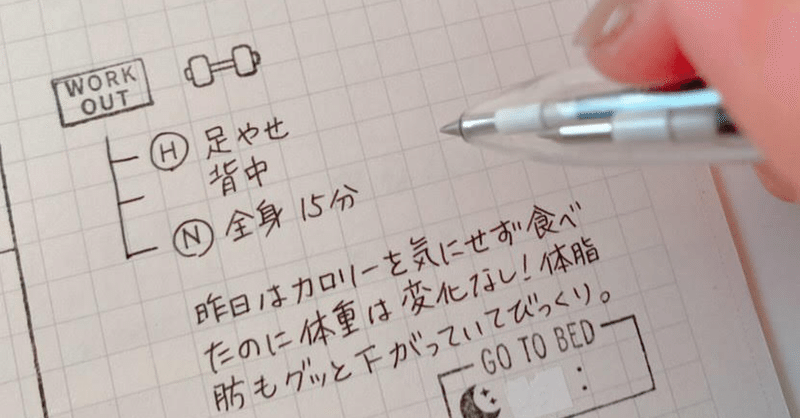 WORK
OUT
H 足やせ
背中
N 全身 15分
昨日はカロリーを気にせず食べ
たのに体重は変化なし！体脂
肪もグッと下がっていてびっくり。
GO TO BED
: